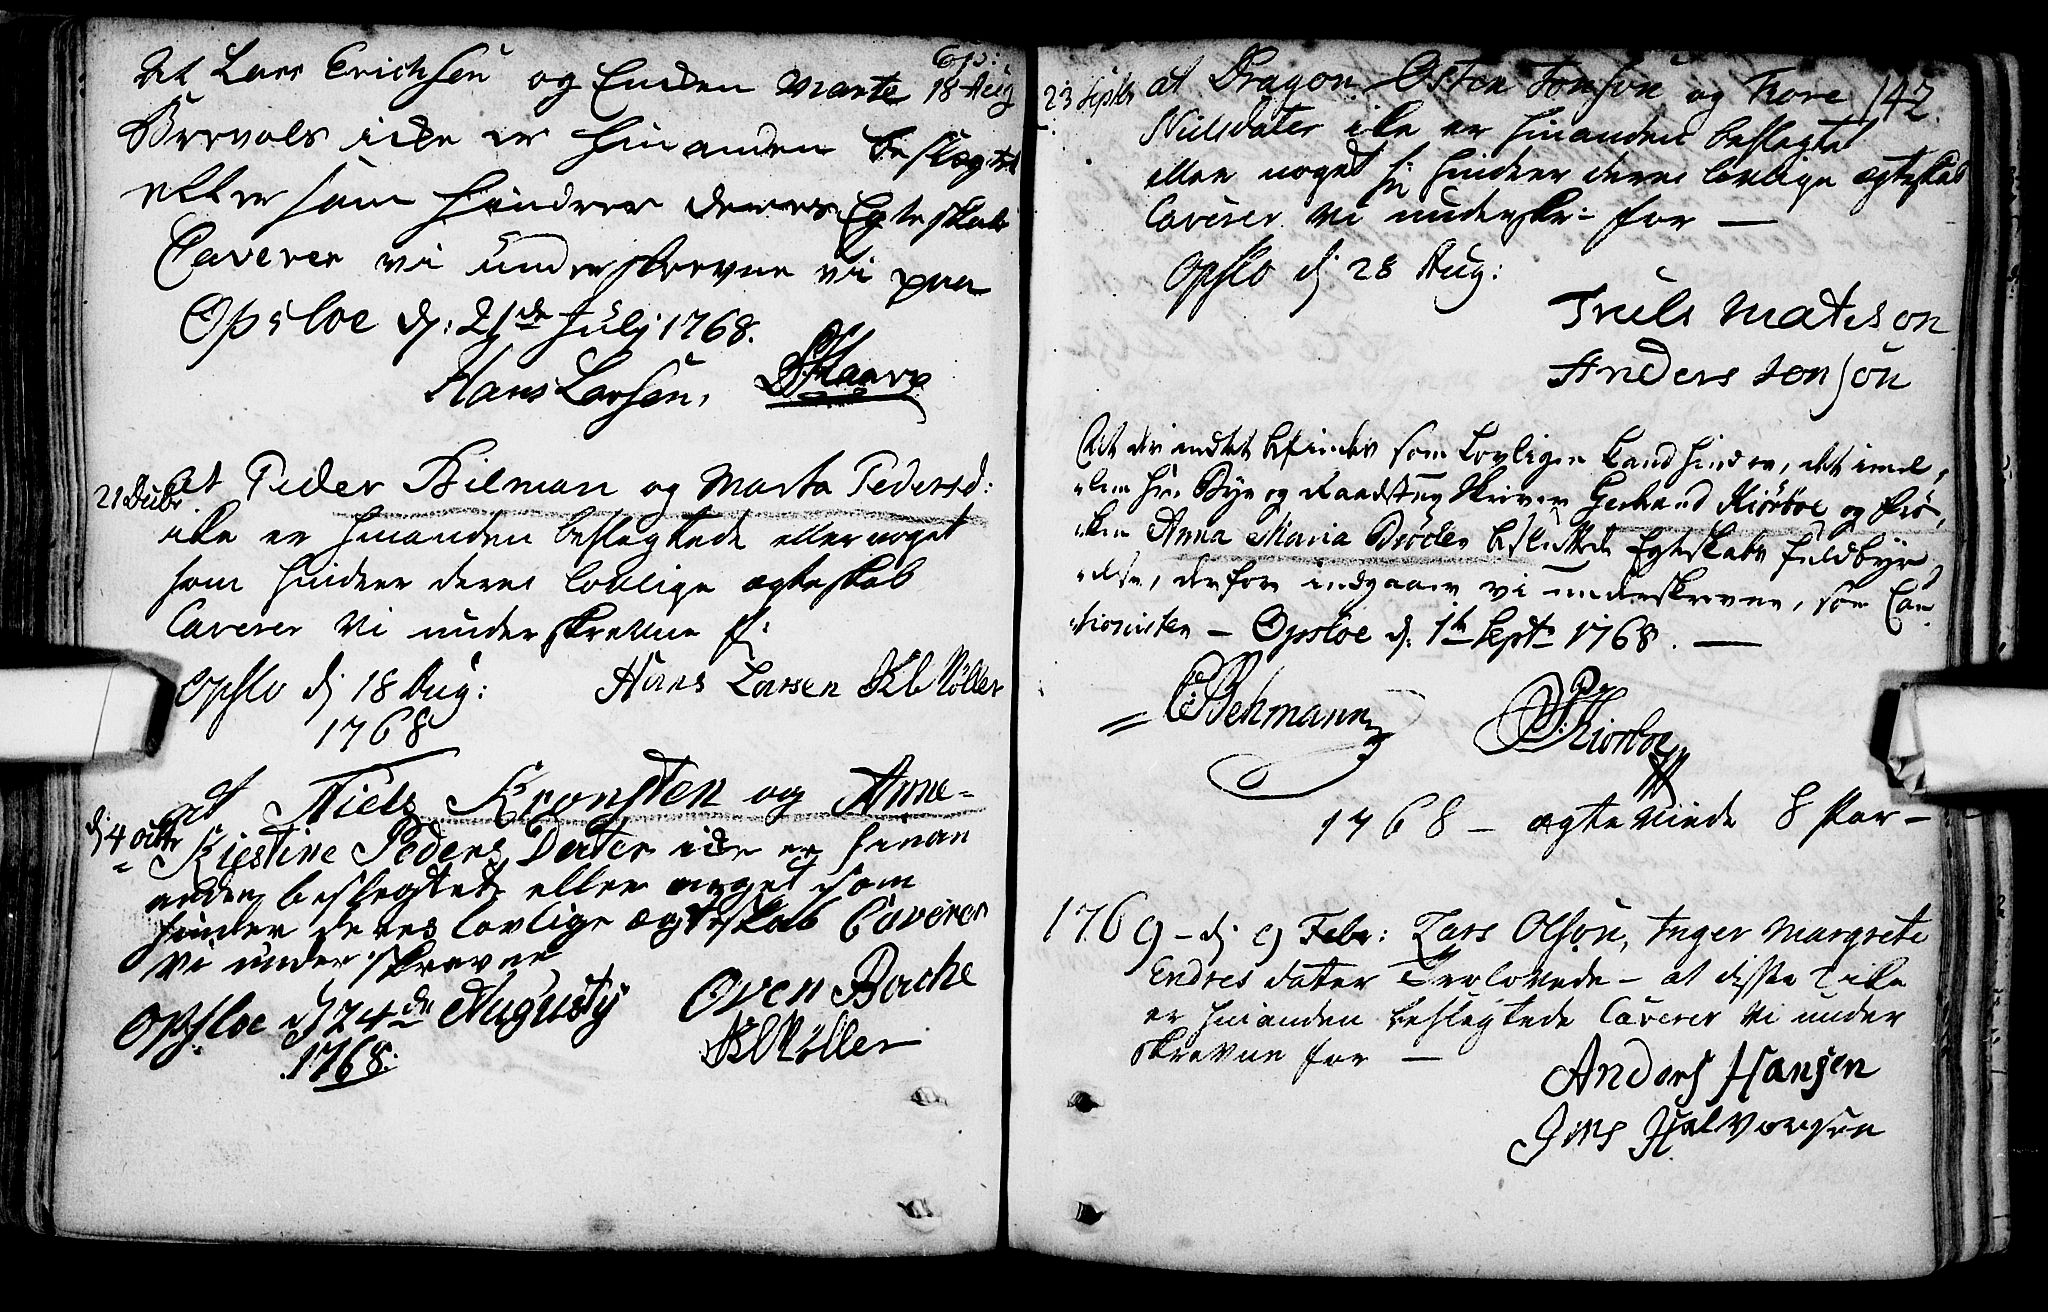 At Lars Erichsen og Enken Marte
Cop:
18 Aug
Brevols icke er hinanden beslægtet
eller som hindrer deres Egteskab
Caverer vi underskrevne vi paa
Opsloe d: 21de July 1768.
Hans Larsen.
21 Decbr
At Peder Bilman og Marta Pedersd:
ike er hinanden beslegtede eller noget
som hindrer deres lovlige ægteskab
Caverer Vi underskrevne f:
Opslo dj 18 Aug: Hans Larsen Møller
1768
dj 4 octbr
at Niels Kronsten og Anne-
Kiestine Peders Dater icke er hinan
anden beslegtet eller noget som
hinder deres lovlige ægteskab Caverer
Vi underskrevne
Opsloe d 24de Augusty Oven Bache
1768: Møller
142.
23 Septbr at Dragon Osten Jonson og Tore
Nielsdater ike er hinanden beslegtet
eller noget hinder deres lovlige ægteskab
Caverer Vi underskr: for —
Opslo dj 28 Aug:
Truls Matison
Anders Jonson
At der intet befindes som Lovligen kand hindre, det imel,
lem Hr. Bye og Raadstuz Skriver Gerhard Kiørboe og Frø,
ken Anna Maria Brøder besluttede Egteskabs fuldbyr,
delse, derfore indgaaer vi underskrevne, som Cau
tionister — Opsloe d. 1te Sept: 1768. —
Behmann Kiørboe
1768 — ægteviede 8 Par —
1769 — dj 9 Febr: Lars Olson, Inger Margrete
Endres dater Trolovede — at disse 2 ike
er hinanden beslegtede Caverer Vi under
skrevne for —
Anders Hansen
Jens Halvorsen